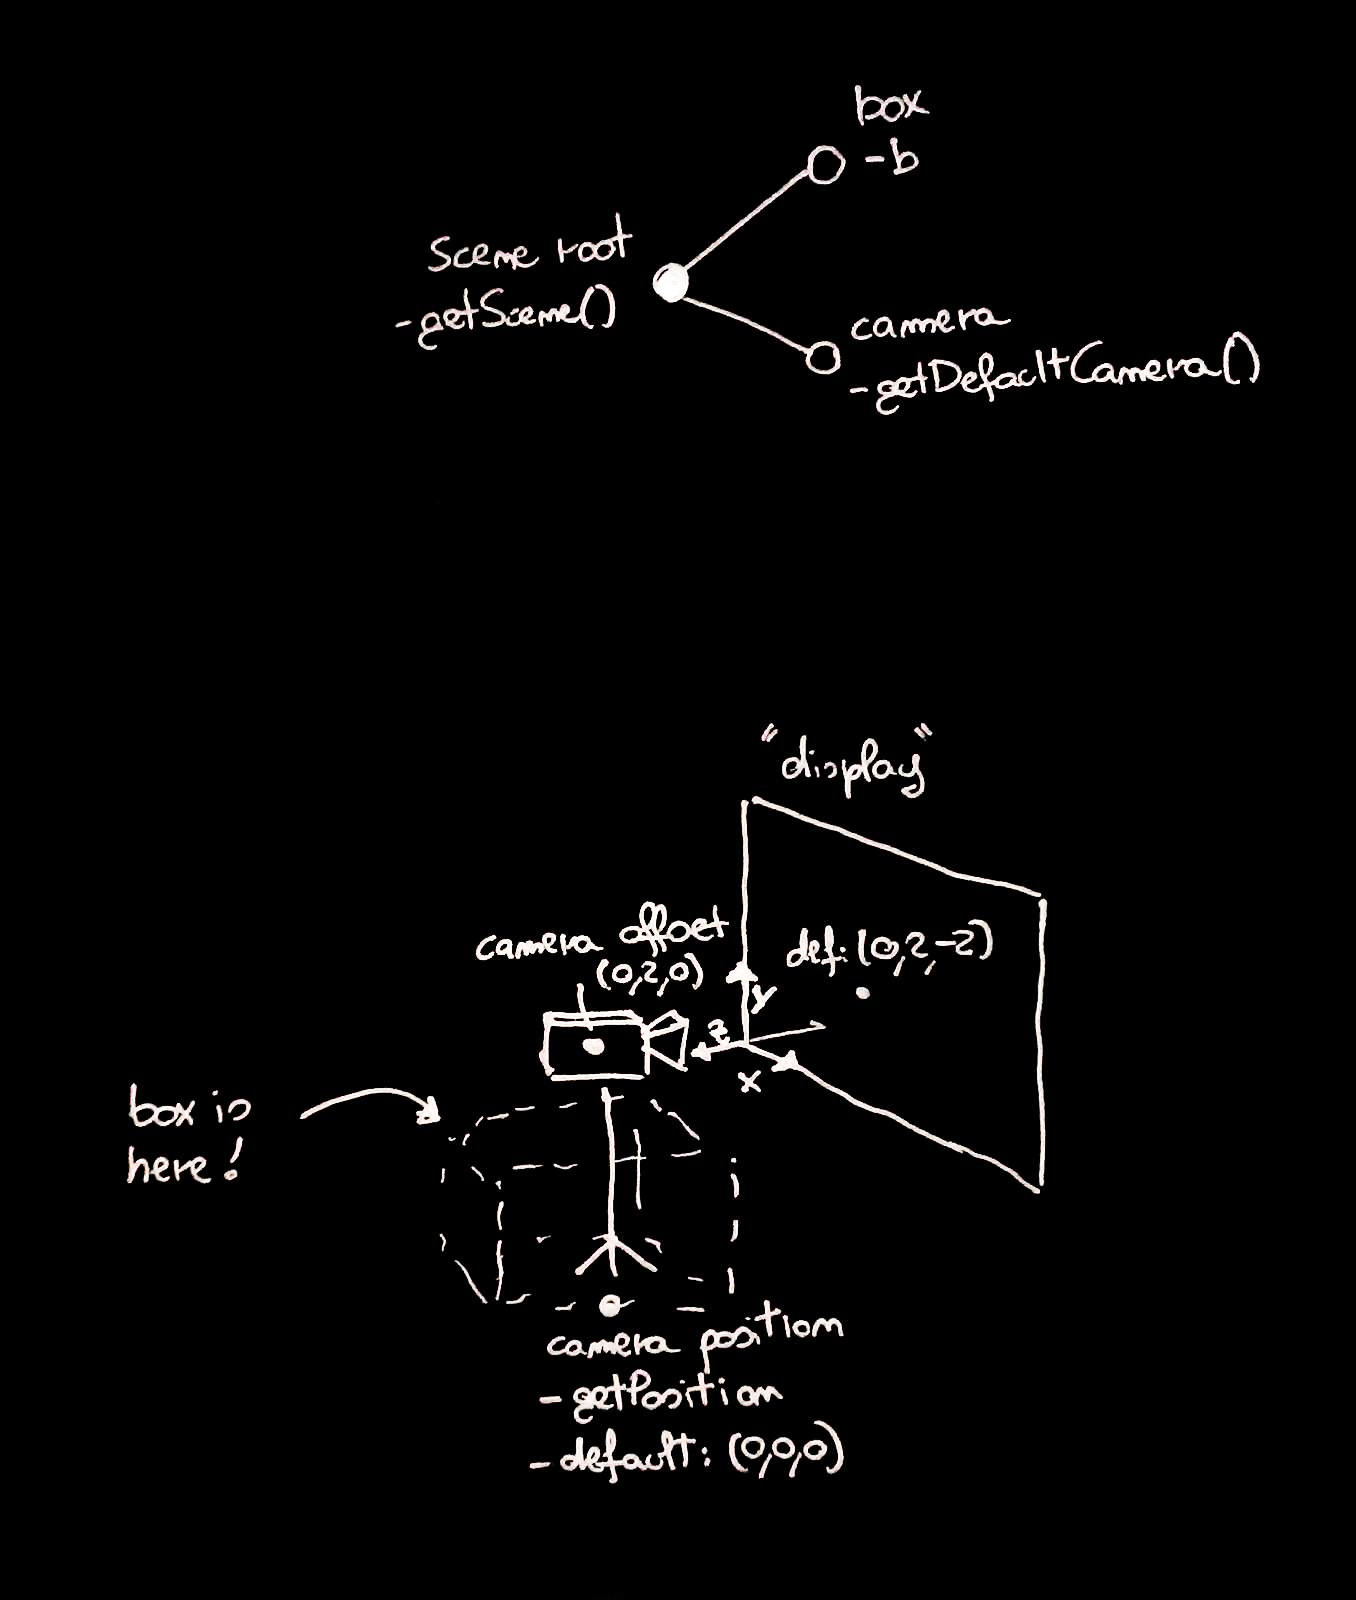 box
-b
Scene root
-getScene()
camera
-getDefaultCamera()
"display"
camera offset
(0,2,0)
def: (0,2,-2)
y
z
x
box is
here!
camera position
-getPosition
-default: (0,0,0)